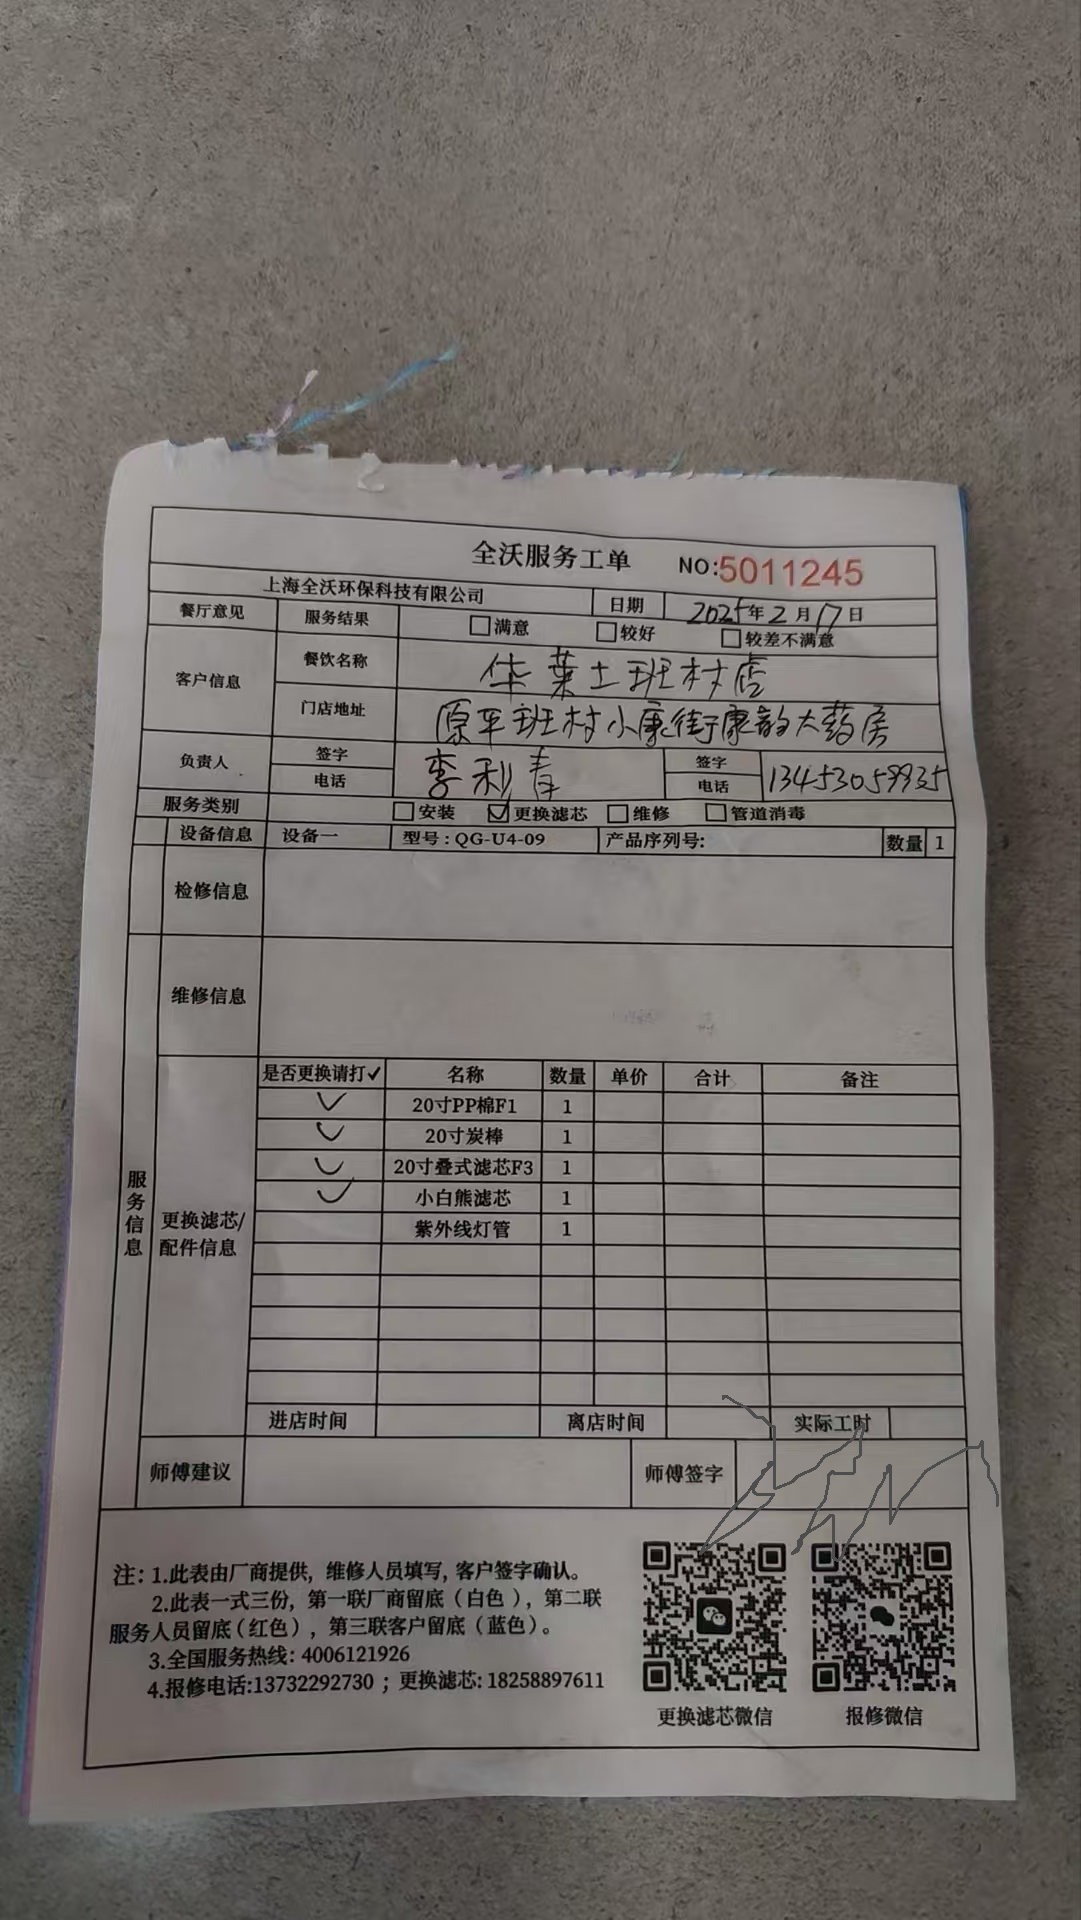 全沃服务工单 NO:5011245
上海全沃环保科技有限公司 日期 2025年2月17日
餐厅意见 服务结果 □满意 □较好 □较差不满意
客户信息 餐饮名称 华莱士班村店
门店地址 原平班村小康街康韵大药房
负责人 签字 李利青 签字
电话 电话 13453059935
服务类别 □安装 ☑更换滤芯 □维修 □管道消毒
设备信息 设备一 型号:QG-U4-09 产品序列号: 数量 1
检修信息
维修信息
服务信息
更换滤芯/配件信息
是否更换请打✓ 名称 数量 单价 合计 备注
✓ 20寸PP棉F1 1
✓ 20寸炭棒 1
✓ 20寸叠式滤芯F3 1
✓ 小白熊滤芯 1
紫外线灯管 1
进店时间 离店时间 实际工时
师傅建议 师傅签字
注: 1.此表由厂商提供, 维修人员填写, 客户签字确认。
2.此表一式三份, 第一联厂商留底(白色), 第二联
服务人员留底(红色), 第三联客户留底(蓝色)。
3.全国服务热线: 4006121926
4.报修电话:13732292730 ; 更换滤芯: 18258897611
更换滤芯微信 报修微信